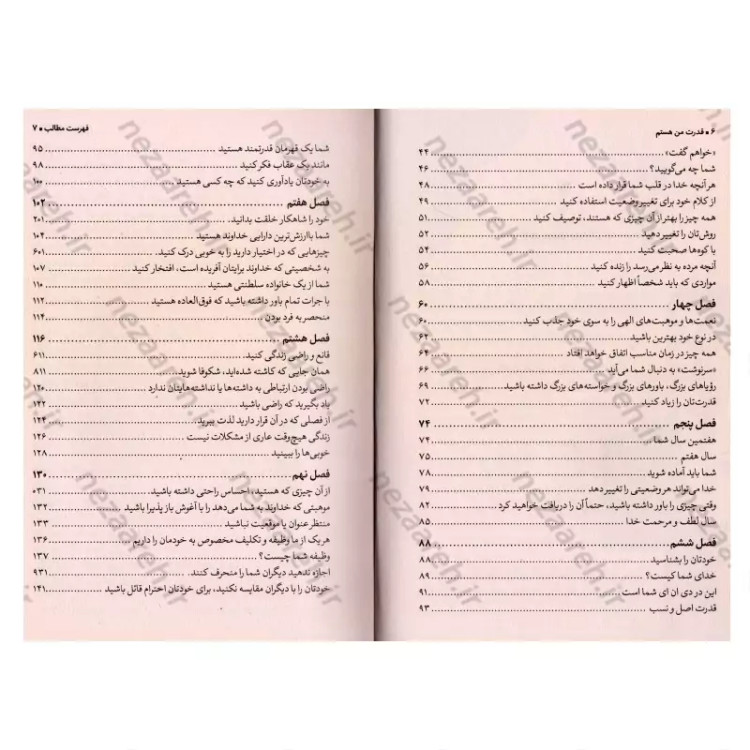 ۶ • قدرت من هستم
«خواهم گفت» ۴۴
شما چه می‌گویید؟ ۴۶
هر آنچه خدا در قلب شما قرار داده است ۴۸
از کلام خود برای تغییر وضعیت استفاده کنید ۴۹
همه چیز را بهتر از آن چیزی که هستند، توصیف کنید ۵۱
روش‌تان را تغییر دهید ۵۲
با کوه‌ها صحبت کنید ۵۴
آنچه مرده به نظر می‌رسد را زنده کنید ۵۶
مواردی که باید شخصاً اظهار کنید ۵۸
فصل چهار ۶۰
نعمت‌ها و موهبت‌های الهی را به سوی خود جذب کنید ۶۰
در نوع خود بهترین باشید ۶۳
همه چیز در زمان مناسب اتفاق خواهد افتاد ۶۴
«سرنوشت» به دنبال شما می‌آید ۶۶
رؤیاهای بزرگ، باورهای بزرگ و خواسته‌های بزرگ داشته باشید ۶۹
قدرت‌تان را زیاد کنید ۷۲
فصل پنجم ۷۴
هفتمین سال شما ... ۷۴
سال هفتم ۷۵
شما باید آماده شوید ۷۸
خدا می‌تواند هر وضعیتی را تغییر دهد ۷۹
وقتی چیزی را باور داشته باشید، حتماً آن را دریافت خواهید کرد ۸۲
سال لطف و مرحمت خدا ۸۵
فصل ششم ۸۸
خودتان را بشناسید ۸۸
خدای شما کیست؟ ۸۹
این در دی ان ای شما است ۹۱
قدرت اصل و نسب ۹۳
فهرست مطالب • ۷
شما یک قهرمان قدرتمند هستید ۹۵
مانند یک عقاب فکر کنید ۹۸
به خودتان یادآوری کنید که چه کسی هستید ۱۰۰
فصل هفتم ۱۰۲
خود را شاهکار خلقت بدانید. ۲۰۱
شما باارزش‌ترین دارایی خداوند هستید ۱۰۴
چیزهایی که در اختیار دارید را به خوبی درک کنید. ۶۰۱
به شخصیتی که خداوند برایتان آفریده است، افتخار کنید ۱۰۷
شما از یک خانواده سلطنتی هستید ۱۱۰
با جرات تمام باور داشته باشید که فوق‌العاده هستید ۱۱۲
منحصربه فرد بودن ۱۱۴
فصل هشتم ۱۱۶
قانع و راضی زندگی کنید. ۶۱۱
همان جایی که کاشته شده‌اید، شکوفا شوید. ۸۱۱
راضی بودن ارتباطی به داشته‌ها یا نداشته‌هایتان ندارد ۱۲۰
یاد بگیرید که راضی باشید ۱۲۲
از فصلی که در آن قرار دارید لذت ببرید ۱۲۴
زندگی هیچ‌وقت عاری از مشکلات نیست ۱۲۶
خوبی‌ها را ببینید ۱۲۸
فصل نهم ۱۳۰
از آن چیزی که هستید، احساس راحتی داشته باشید. ۰۳۱
موهبتی که خداوند به شما می‌دهد را با آغوش باز پذیرا باشید ۱۳۲
منتظر عنوان یا موقعیت نباشید ۱۳۳
هر یک از ما وظیفه و تکلیف مخصوص به خودمان را داریم ۱۳۶
وظیفه شما چیست؟ ۱۳۷
اجازه ندهید دیگران شما را منحرف کنند. ۹۳۱
خودتان را با دیگران مقایسه نکنید، برای خودتان احترام قائل باشید ۱۴۱
nezaareh.ir